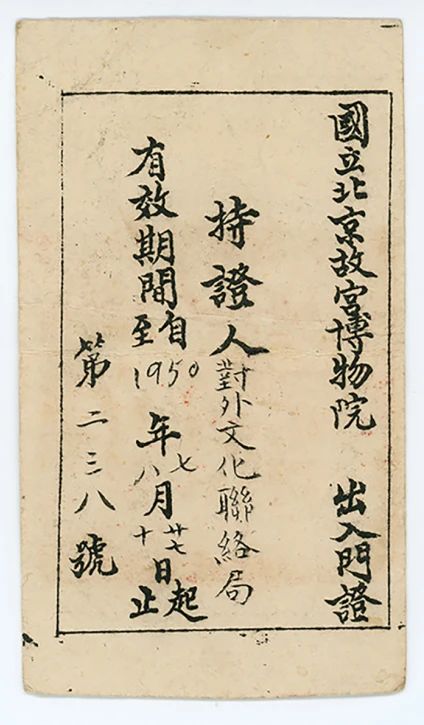 國立北京故宮博物院 出入門證
持證人對外文化聯絡局
有效期間自至1950年七八月廿七十日起止
第二三八號